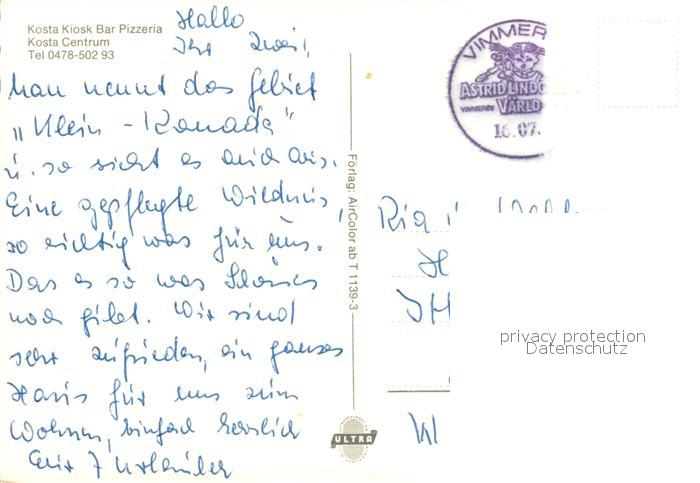 Kosta Kiosk Bar Pizzeria
Kosta Centrum
Tel 0478-502 93
Hallo
Ihr zwei,
man nennt das Gebiet
„Klein-Kanada"
u. so sieht es auch aus.
Eine gepflegte Wildnis,
so richtig was für uns.
Das es so was Schönes
noch gibt. Wir sind
sehr zufrieden, ein ganzes
Haus für uns zum
Wohnen, einfach herrlich
7 Urlauber
Förlag: AirColor ab T 1139-3
ULTRA
VIMMER
ASTRID LINDG
VIMMERBY VÄRLD
16.07.
Ria
privacy protection
Datenschutz